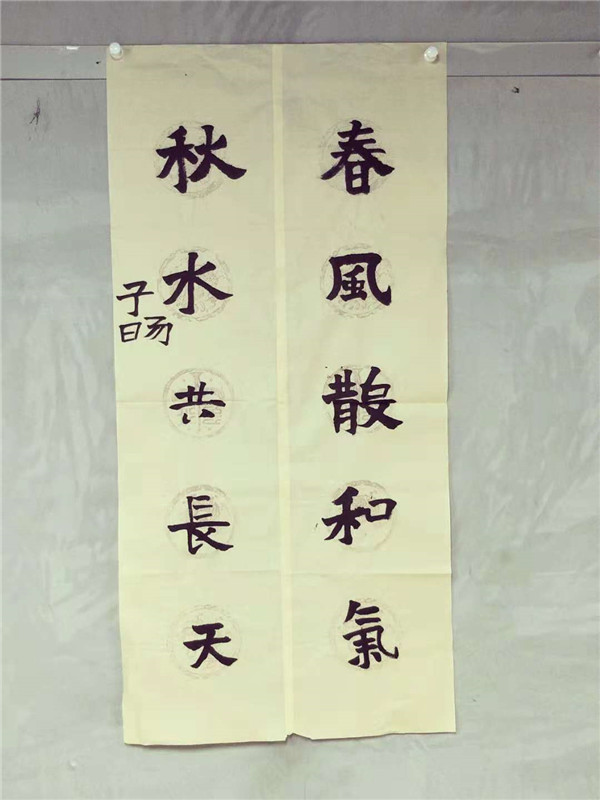 春風散和氣
秋水共長天
子旸